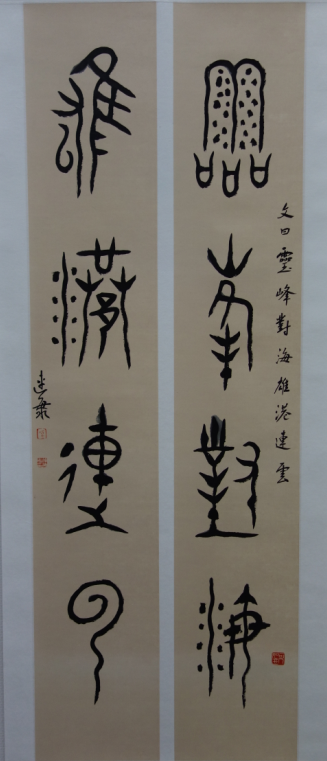 靈峯對海
文曰靈峰對海雄港連雲
雄港連云